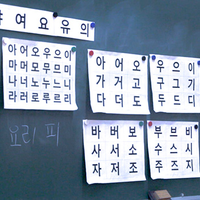 여요유의
아어오우으이
마머모무므미
나너노누느니
라러로루르리
아어오
가거고
다더도
우으이
구그기
두드디
바버보
사서소
자저조
부브비
수스시
주즈지
요리 피